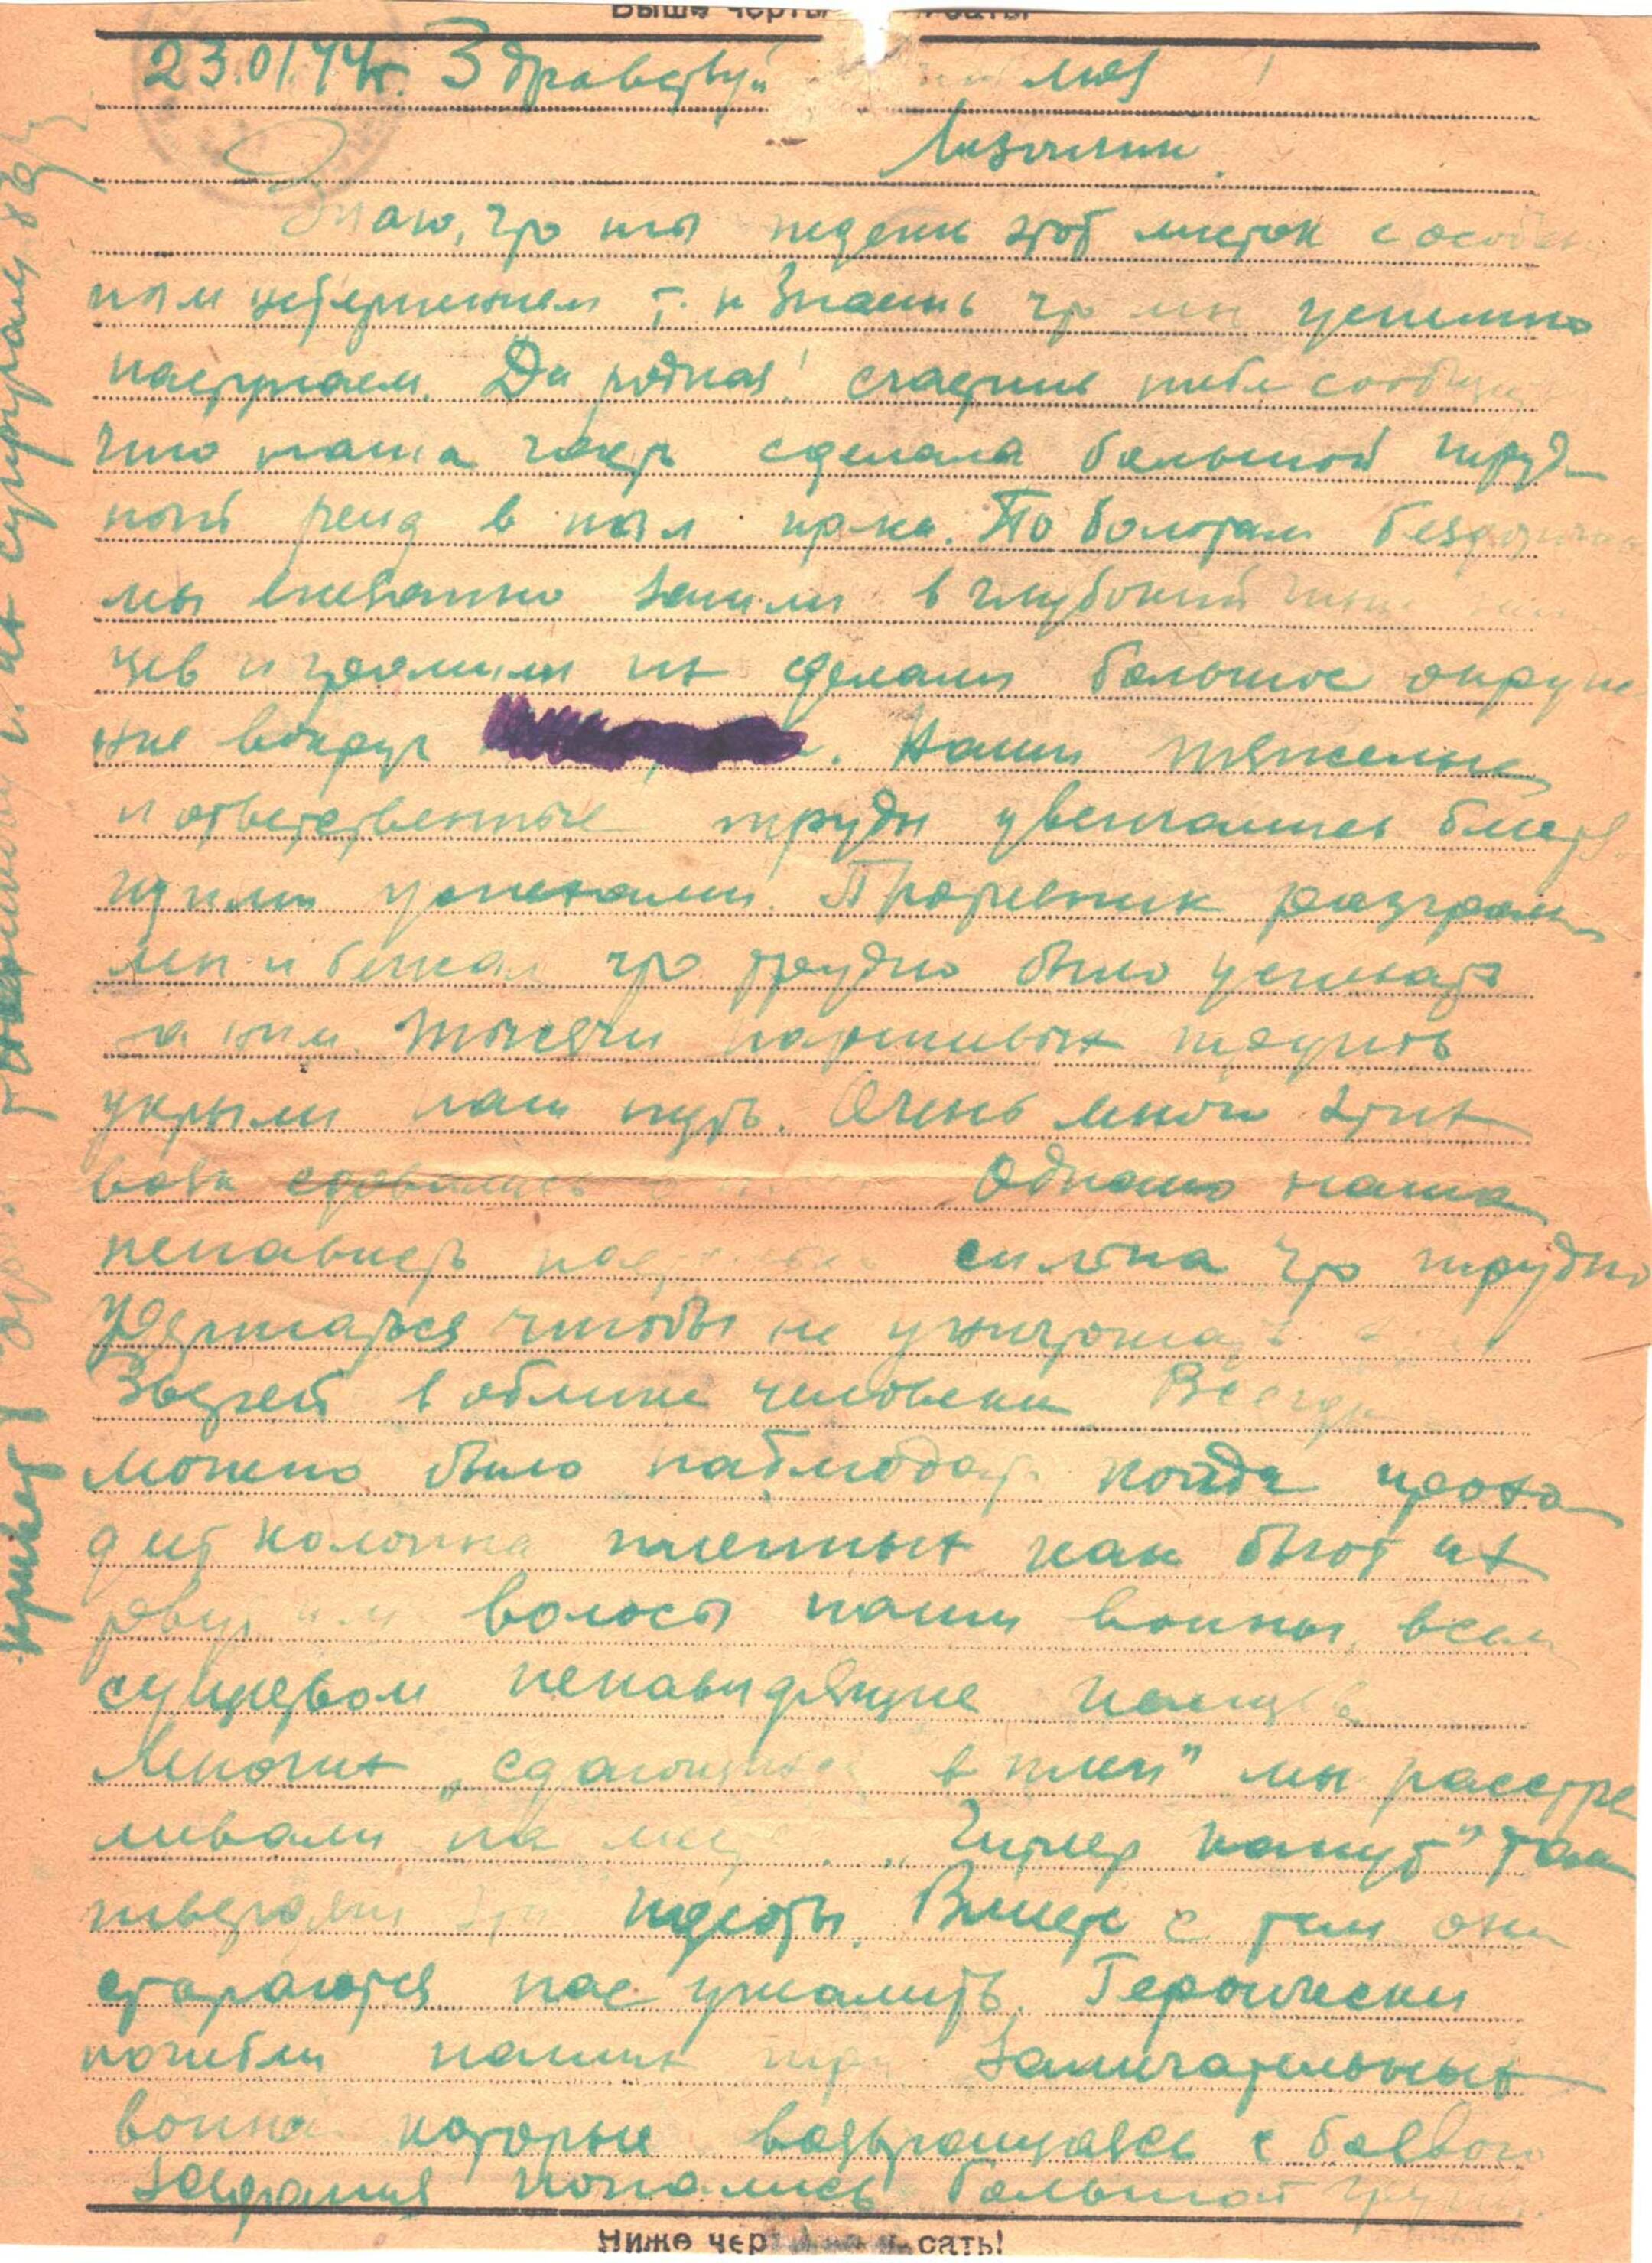 23.01.44г. Здравствуй моя!
Лизочка
Знаю, что ты ждешь этот листок с особен
ным нетерпением т.к знаешь что мы успешно
наступаем. Да родная! счастлив тебе сообщить
что наша часть сделала большой труд
ный рейд в тыл врага. По болотам бездорожью
мы внезапно зашли в глубокий тыл нем
цев и громили их сделали большое окруже
ние вокруг. Наши тяжелые
и ответственные труды увенчались блестя
щими успехами. Противник разгром
лен и бежал что трудно было успевать
за ним. Тысячи паршивых трупов
укрыли наш путь. Очень много этих
сдавались Однако наша
ненависть настолько сильна что трудно
удержаться чтобы не уничтожать
зверей в облике человека. Всегда
можно было наблюдать когда прохо
дит колонна пленных как бьют их
рвут им волосы наши воины, всем
существом ненавидящие немцев
Многих „сдающихся в плен" мы расстре
ливали на месте. „Гитлер капут" так
твердили эти идиоты. Вместе с тем они
стараются нас ужалить. Героически
погибли наших три замечательных
воина которые возвращаясь с боевого
задания попались большой группе
Ниже черты не писать!